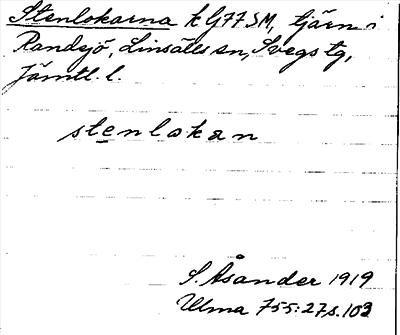 Stenlokarna k G77SM, tjärn i
Randsjö, Linsälls sn, Svegs tg,
Jämtl. l.
stenlokan
S. Åsander 1919
Ulma 755:27 s. 103